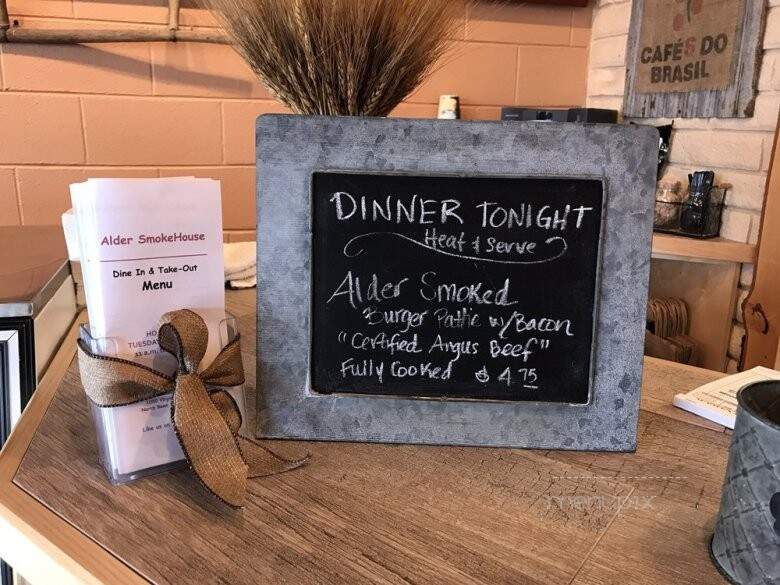 CAFÉS DO
BRASIL
DINNER TONIGHT
Heat & Serve
Alder Smoked
Burger Pattie w/Bacon
"Certified Angus Beef"
Fully Cooked $ 4 75
Alder SmokeHouse
Dine In & Take-Out
Menu
TUESDA
11 a.m.
North Bend
Like us on
menupix